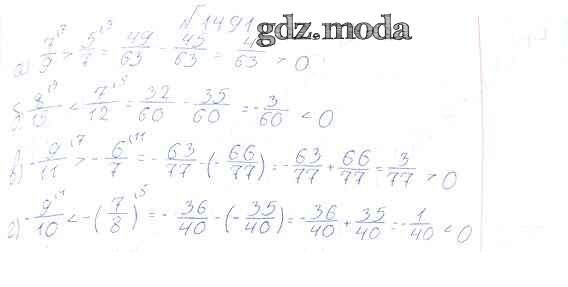 №1491
gdz.moda
а) 7/9 ⁷ > 5/7 ⁹ = 49/63 - 45/63 = 4/63 > 0
б) 8/15 ⁴ < 7/12 ⁵ = 32/60 - 35/60 = -3/60 < 0
в) -9/11 ⁷ > -6/7 ¹¹ = -63/77 - (-66/77) = -63/77 + 66/77 = 3/77 > 0
г) -9/10 ⁴ < -(7/8) ⁵ = -36/40 - (-35/40) = -36/40 + 35/40 = -1/40 < 0